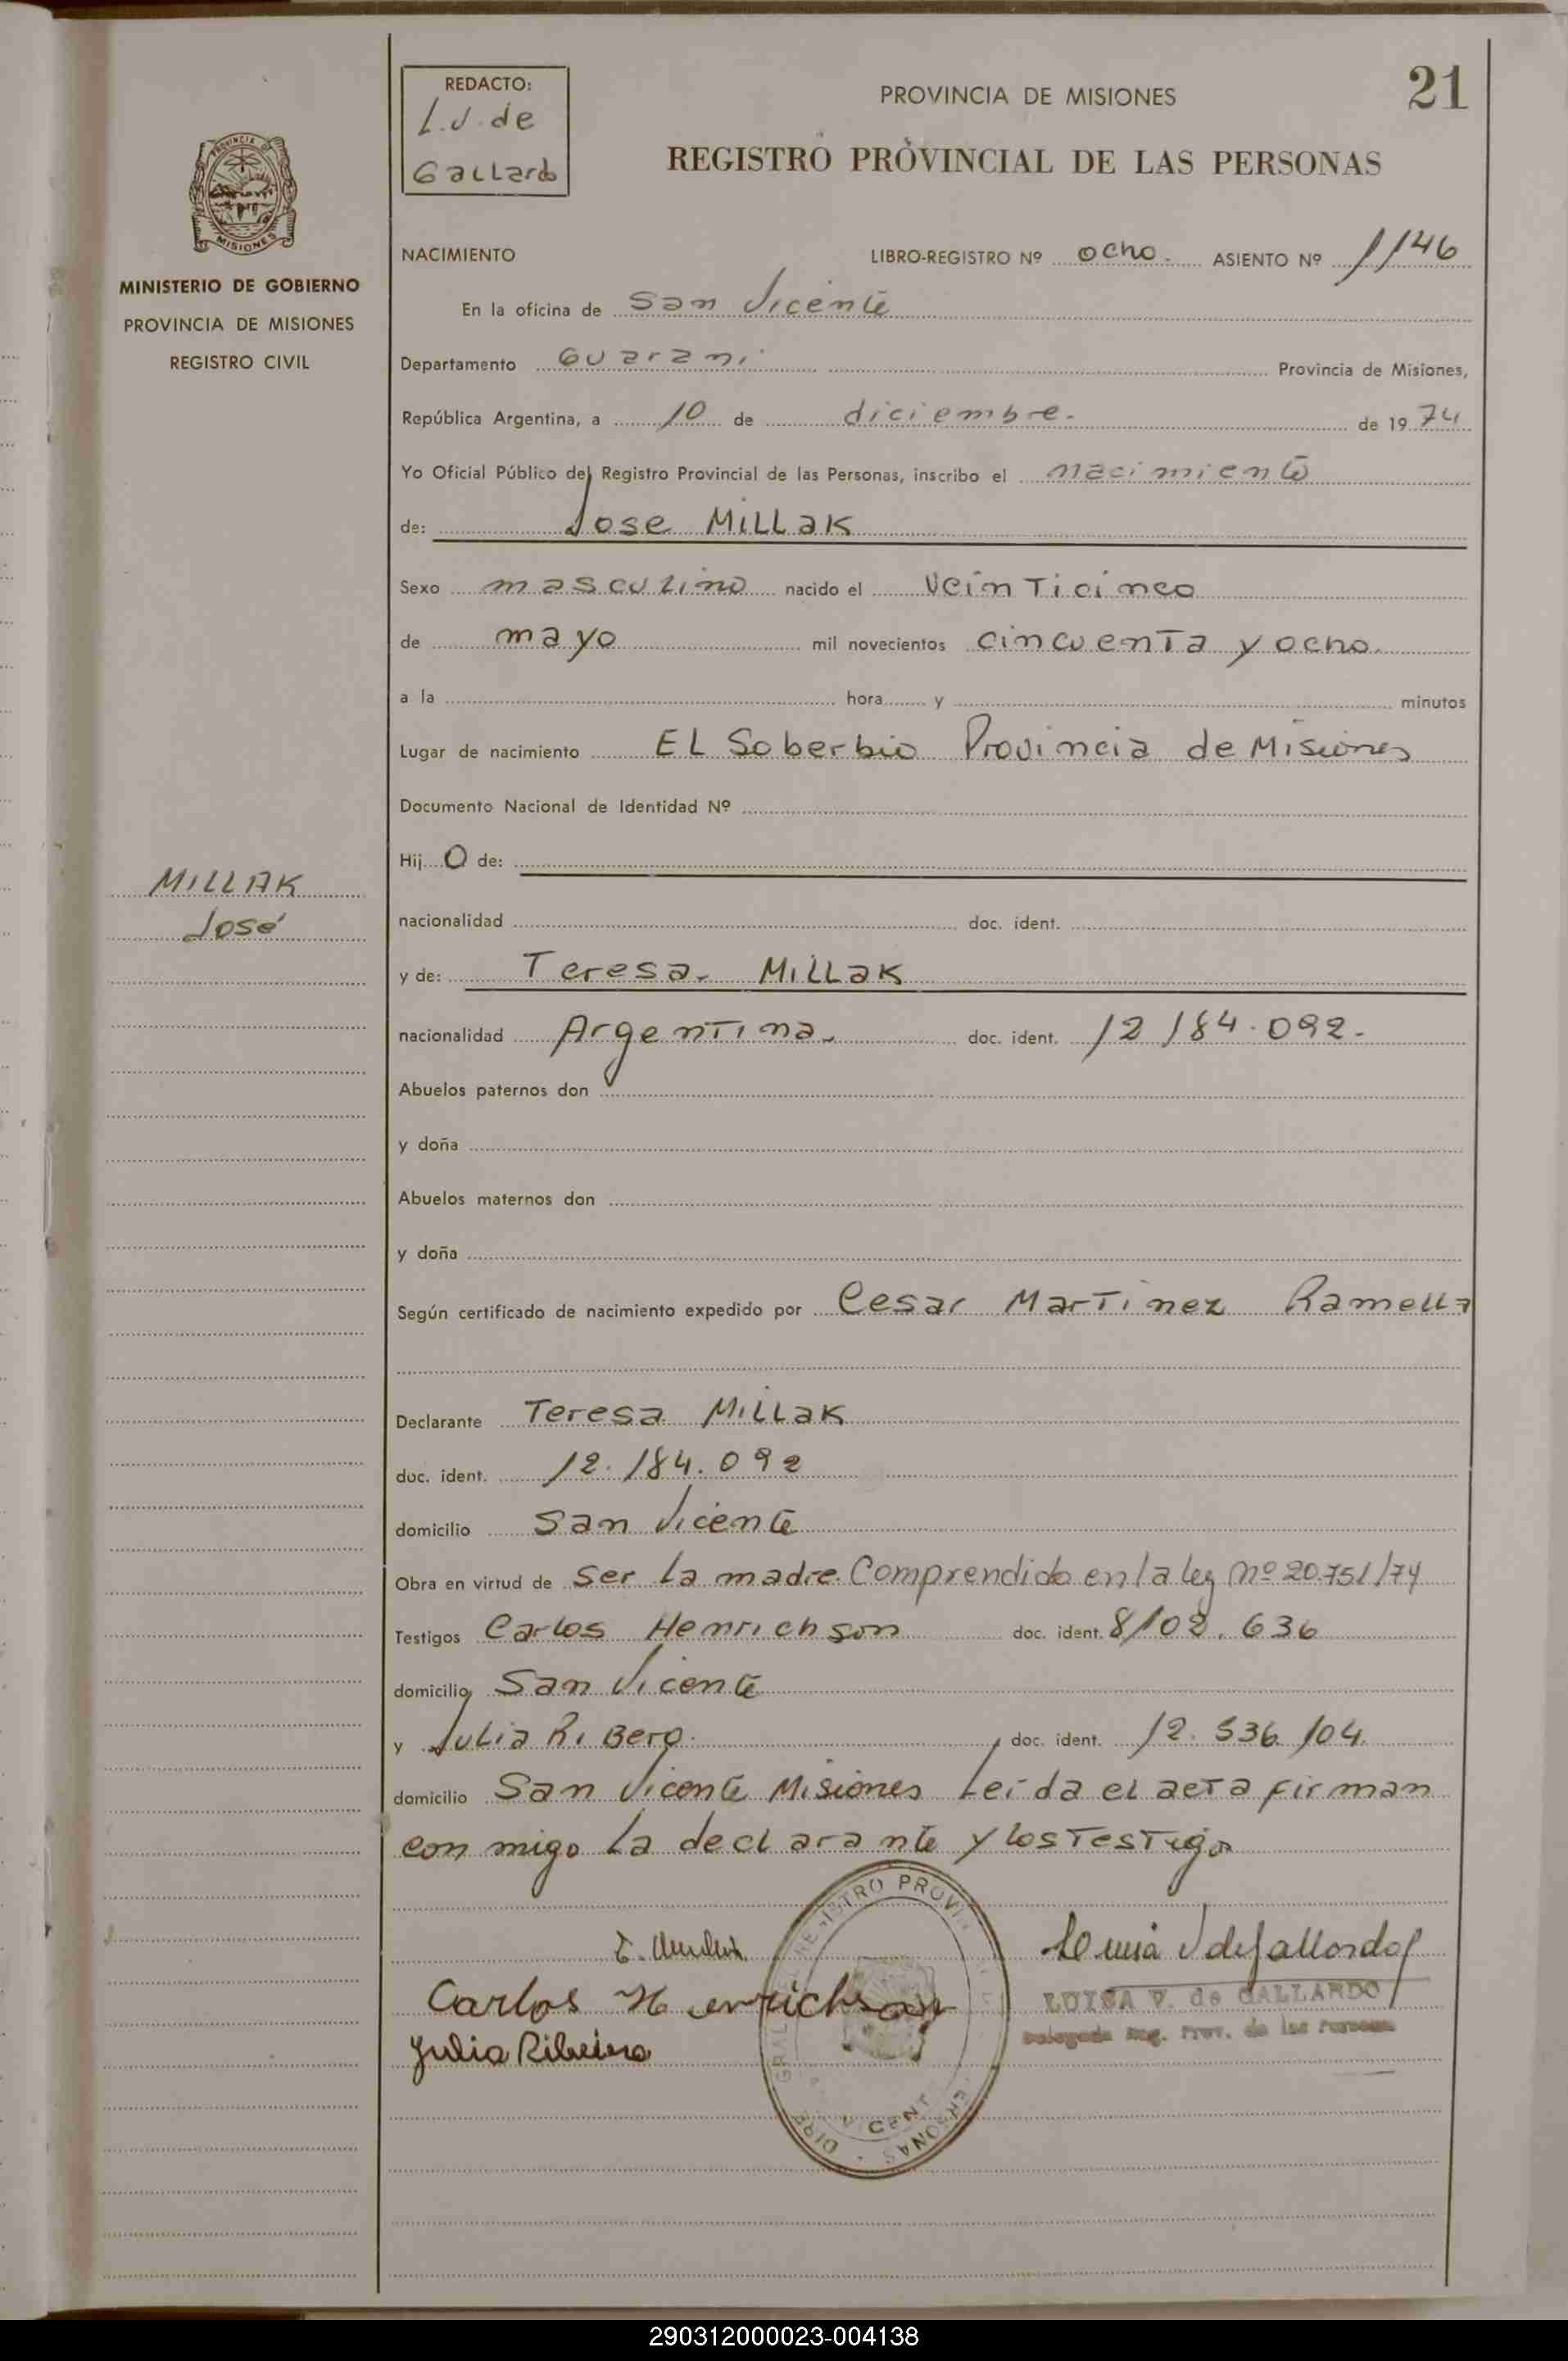 REDACTO:
L.V. de
Gallardo
PROVINCIA DE MISIONES
21
REGISTRO PROVINCIAL DE LAS PERSONAS
MISIONES
MINISTERIO DE GOBIERNO
PROVINCIA DE MISIONES
REGISTRO CIVIL
NACIMIENTO LIBRO-REGISTRO Nº ocho. ASIENTO Nº 1146
En la oficina de San Vicente
Departamento Guarani Provincia de Misiones,
República Argentina, a 10 de diciembre. de 19 74
Yo Oficial Público del Registro Provincial de las Personas, inscribo el nacimiento
de: Jose Millak
Sexo masculino nacido el veinticinco
de mayo mil novecientos cincuenta y ocho.
a la hora y minutos
Lugar de nacimiento El Soberbio Provincia de Misiones
Documento Nacional de Identidad Nº
Hij O de:
MILLAK
José
nacionalidad doc. ident.
y de: Teresa. Millak
nacionalidad Argentina. doc. ident. 12 184.092.
Abuelos paternos don
y doña
Abuelos maternos don
y doña
Según certificado de nacimiento expedido por Cesar Martinez Ramella
Declarante Teresa Millak
doc. ident. 12.184.092
domicilio San Vicente
Obra en virtud de ser la madre. Comprendido en la ley nº 20.751/74
Testigos Carlos Henrichson doc. ident. 8102.636
domicilio San Vicente
y Julia Ribero. doc. ident. 12.536 104.
domicilio San Vicente Misiones Leida el acta firman
con migo la declarante y los testigos
Carlos Henrichson
Julia Ribeiro
LUISA V. de GALLARDO
Delegada Reg. Prov. de las Personas
290312000023-004138